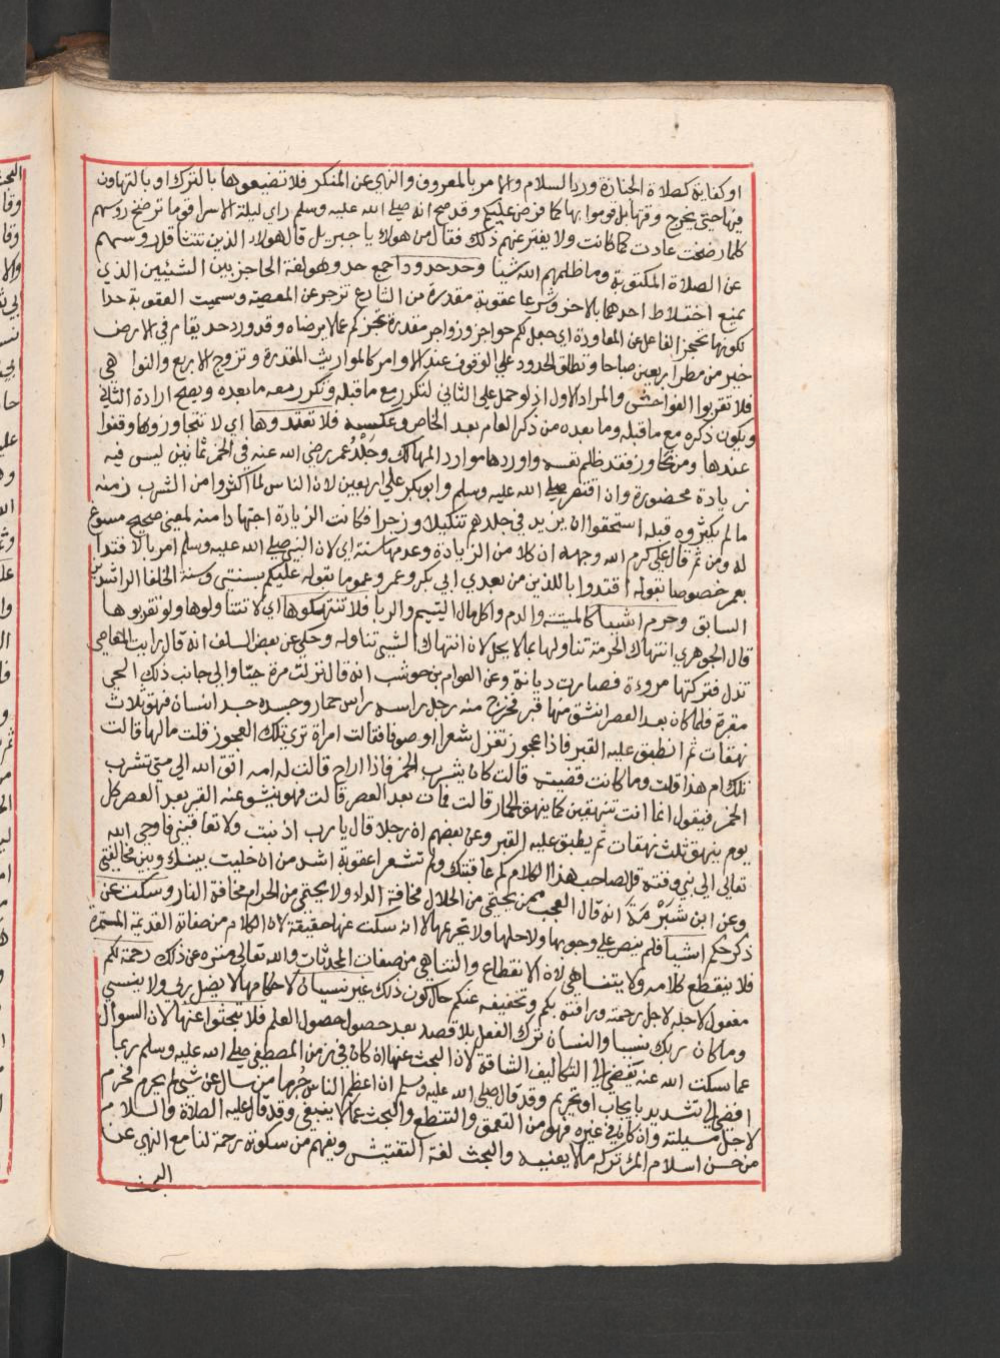 او كفاية كصلاة الجنازة ورد السلام والامر بالمعروف والنهي عن المنكر فلا تضيعوها بالترك او بالتهاون
فيها حتى يخرج وقتها بل قوموا بها كما فرض عليكم وقد صح انه صلى الله عليه وسلم راي ليلة الاسرا قوما ترضخ روسهم
كلما رضخت عادت كما كانت ولا يفتر عنهم ذلك فقال من هولاء يا جبريل قال هولاء الذين تتثاقل روسهم
عن الصلاة المكتوبة وما ظلمهم الله شيا وحد حدودا جمع حد وهو لغة الحاجز بين الشيئين الذي
يمنع اختلاط احدهما بالاخر وشرعا عقوبة مقدرة من الشارع تزجر عن المعصية وسميت العقوبة حدا
لكونها تحجز الفاعل عن المعاودة اي جعل لكم حواجز وزواجر مقدرة تحجزكم عما لا يرضاه وقد ورد حد يقام في الارض
خير من مطر اربعين صباحا وتطلق الحدود علي الوقوف عند الاوامر كالمواريث المقدرة وتزوج الاربع والنواهي
فلا تقربوا الفواحش والمراد الاول اذ لو حمل علي الثاني لتكرر مع ما قبله وتكرر معه ما بعده ويصح ارادة الثاني
ويكون ذكره مع ما قبله وما بعده من ذكر العام بعد الخاص وعكسه فلا تعتدوها اي لا تتجاوزوها وقفوا
عندها ومن تجاوز فقد ظلم نفسه واوردها موارد المهالك وجلد عمر رضي الله عنه في الخمر ثمانين ليس فيه
زيادة محضورة وان اقتصر صلى الله عليه وسلم وابو بكر علي اربعين لان الناس لما اكثروا من الشرب زمنه
مالم يكثروه قبله استحقوا ان يزيد في جلدهم تنكيلا وزجرا فكانت الزيادة اجتهادا منه لمعني صحيح مسوغ
له ومن ثم قال علي كرم الله وجهه ان كلا من الزيادة وعدمها سنة اي لان النبي صلى الله عليه وسلم امر بالاقتدا
بعمر خصوصا بقوله اقتدوا باللذين من بعدي ابي بكر وعمر وعموما بقوله عليكم بسنتي وسنة الخلفا الراشدين
السابق وحرم اشيا كالميتة والدم واكل مال اليتيم والربا فلا تنتهكوها اي لا تتناولوها ولا تقربوها
قال الجوهري انتهاك الحرمة تناولها بما لا يحل لان انتهاك الشي تناوله وحكي عن بعض السلف انه قال رايت المعاصي
تذل فتركتها مروءة فصارت ديانة وعن العوام بن حوشب انه قال نزلت مرة حيا والي جانب ذلك الحي
مقبرة فلما كان بعد العصر انشق منها قبر فخرج منه رجل راسه راس حمار وجسده جسد انسان فنهق ثلاث
نهقات ثم انطبق عليه القبر فاذا عجوز تغزل شعرا او صوفا فقالت امراة تري تلك العجوز قلت مالها قالت
تلك ام هذا قلت وما كانت قضيته قالت كان يشرب الخمر فاذا اراح قالت له امه اتق الله الي متي تشرب
الخمر فيقول انما انت تنهقين كما ينهق الحمار قالت فمات بعد العصر قالت فهو ينشق عنه القبر بعد العصر كل
يوم ينهق ثلث نهقات ثم يطبق عليه القبر وعن بعضهم ان رجلا قال يارب اذنبت ولا تعاقبني فاوحي الله
تعالى الي نبي وقته قل لصاحب هذا الكلام كم عاقبتك ولم تشعرا عقوبة اشد من ان خليت بينك وبين مخالفتي
وعن ابن شبرمة انه قال العجب ممن يحتمي من الحلال مخافة الداء ولا يحتمي من الحرام مخافة النار وسكت عن
ذكر حكم اشيا فلم ينص علي وجوبها ولا حلها ولا تحريمها لا انه سكت عنها حقيقة لان الكلام من صفاته القديمة المستمرة
فلا ينقطع كلامه ولا يتناهي لان الانقطاع والتناهي من صفات المحدثات والله تعالى منزه عن ذلك رحمة لكم
مفعول لاجله لاجل رحمته ورافته بكم وتخفيفه عنكم حال كون ذلك غير نسيان لاحكامها لا يضل ربي ولا ينسي
وما كان ربك نسيا والنسيان ترك الفعل بلا قصد بعد حصول العلم فلا تبحثوا عنها لان السوال
عما سكت الله عنه يفضي الي التكاليف الشاقة لان البحث عنها ان كان في زمن المصطفي صلى الله عليه وسلم ربما
افضي الي تشديد بايجاب او تحريم وقد قال صلى الله عليه وسلم ان اعظم الناس جرما من سال عن شي لم يحرم فحرم
لاجل مسيلته وان كان في غيره فهو من التعمق والتنطع والبحث عما لا ينبغي وقد قال عليه الصلاة والسلام
من حسن اسلام المرء تركه مالا يعنيه والبحث لغة التفتيش ويفهم من سكوته رحمة لنا مع النهي عن